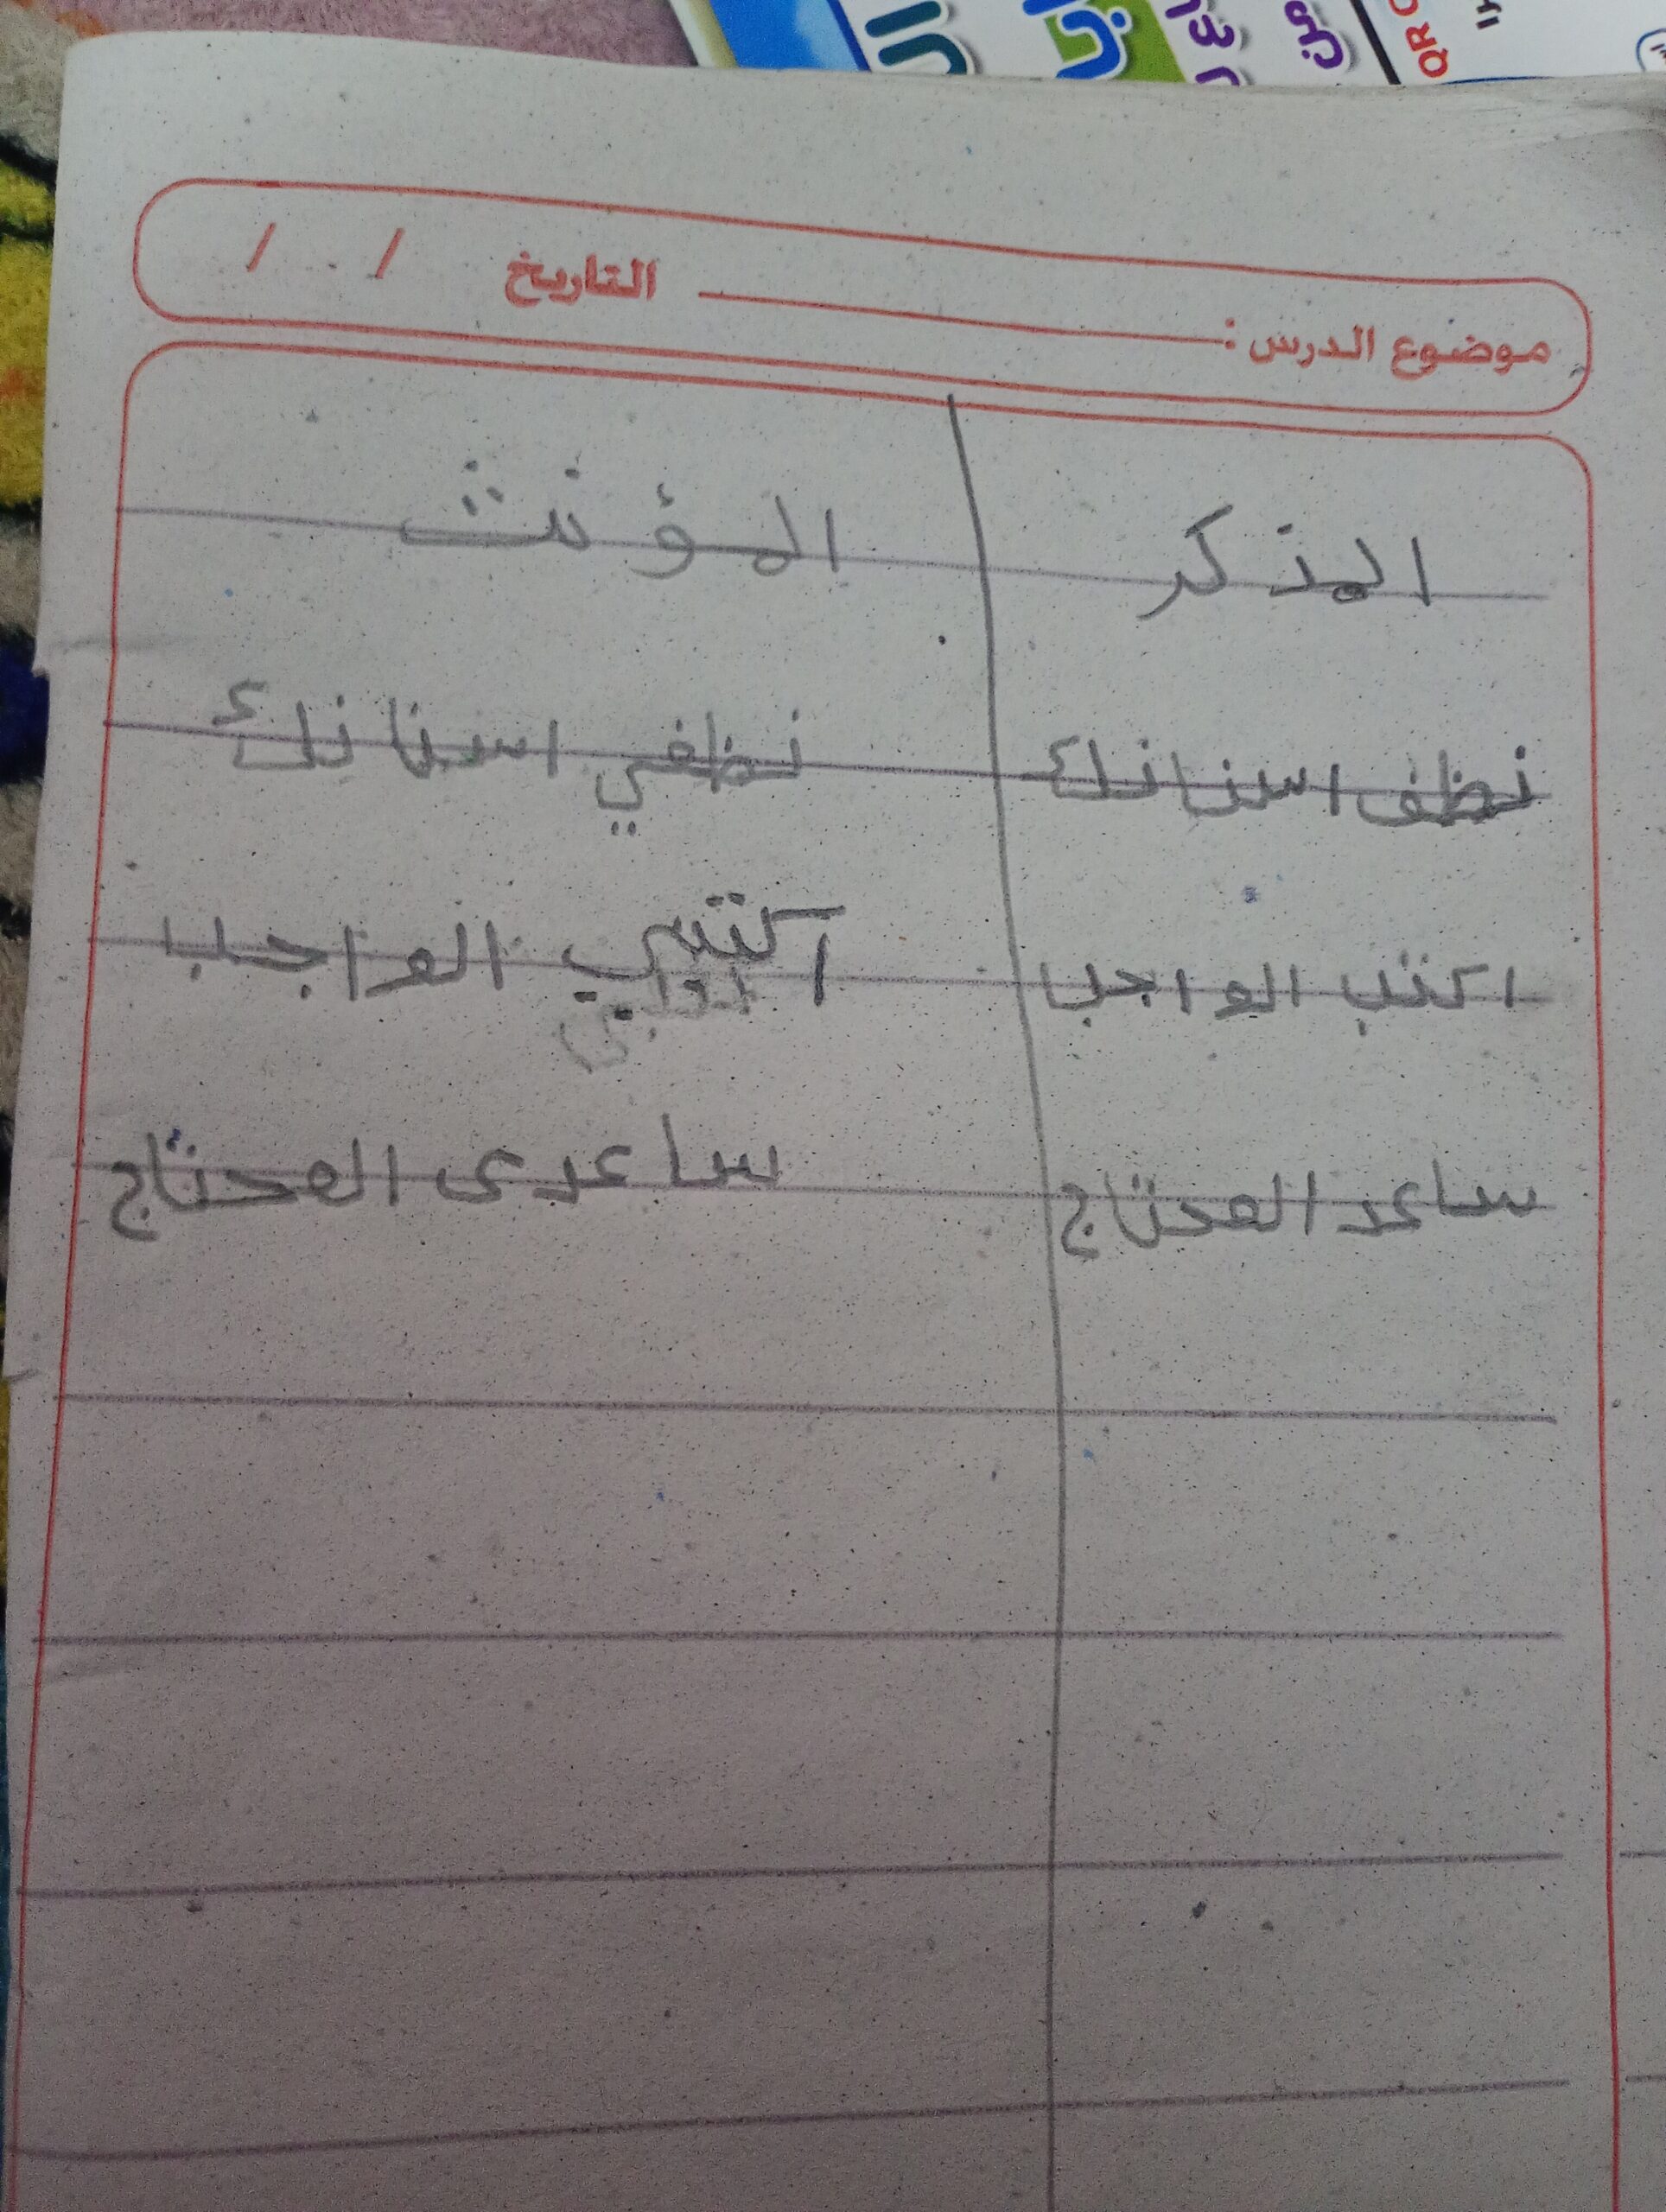 موضوع الدرس: التاريخ / /
المذكر المؤنث
نظف اسنانك نظفي اسنانك
اكتب الواجب اكتبي الواجب
ساعد المحتاج ساعدى المحتاج
QR